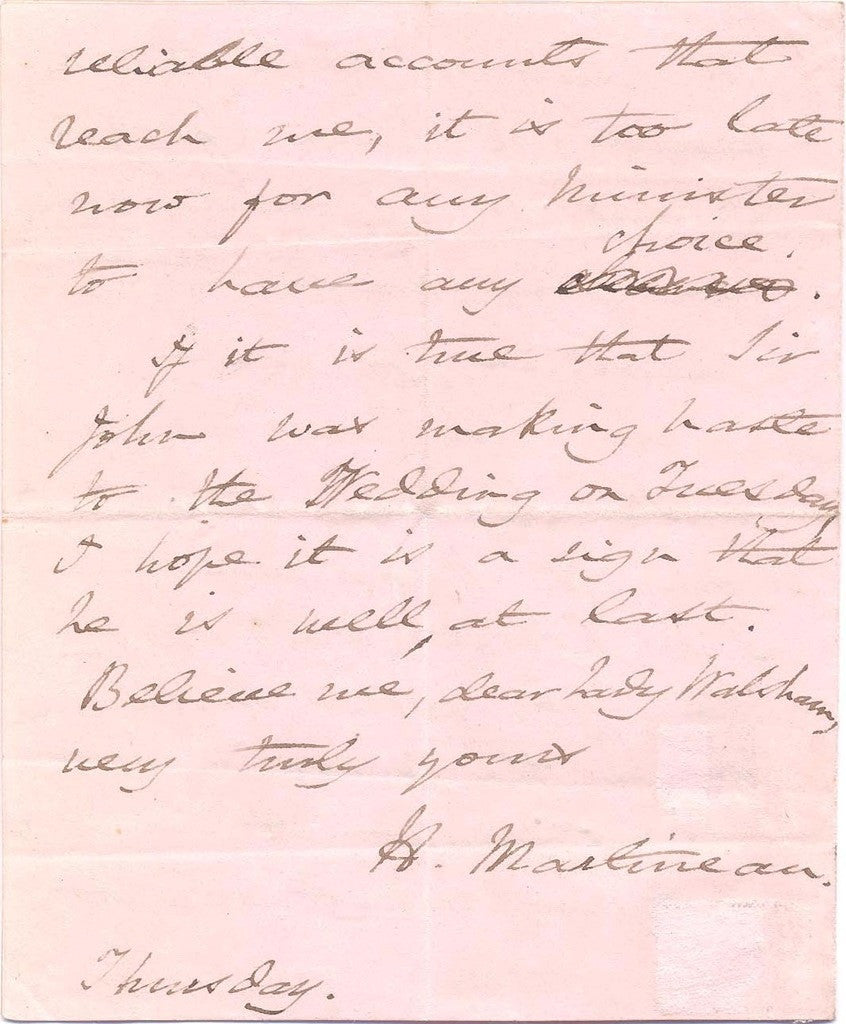 reliable accounts that
reach me, it is too late
now for any Minister
choice.
to have any
If it is true that Sir
John was making haste
to the Wedding on Tuesday,
I hope it is a sign that
he is well, at last.
Believe me, dear Lady Walsham,
very truly yours
H. Martineau.
Thursday.